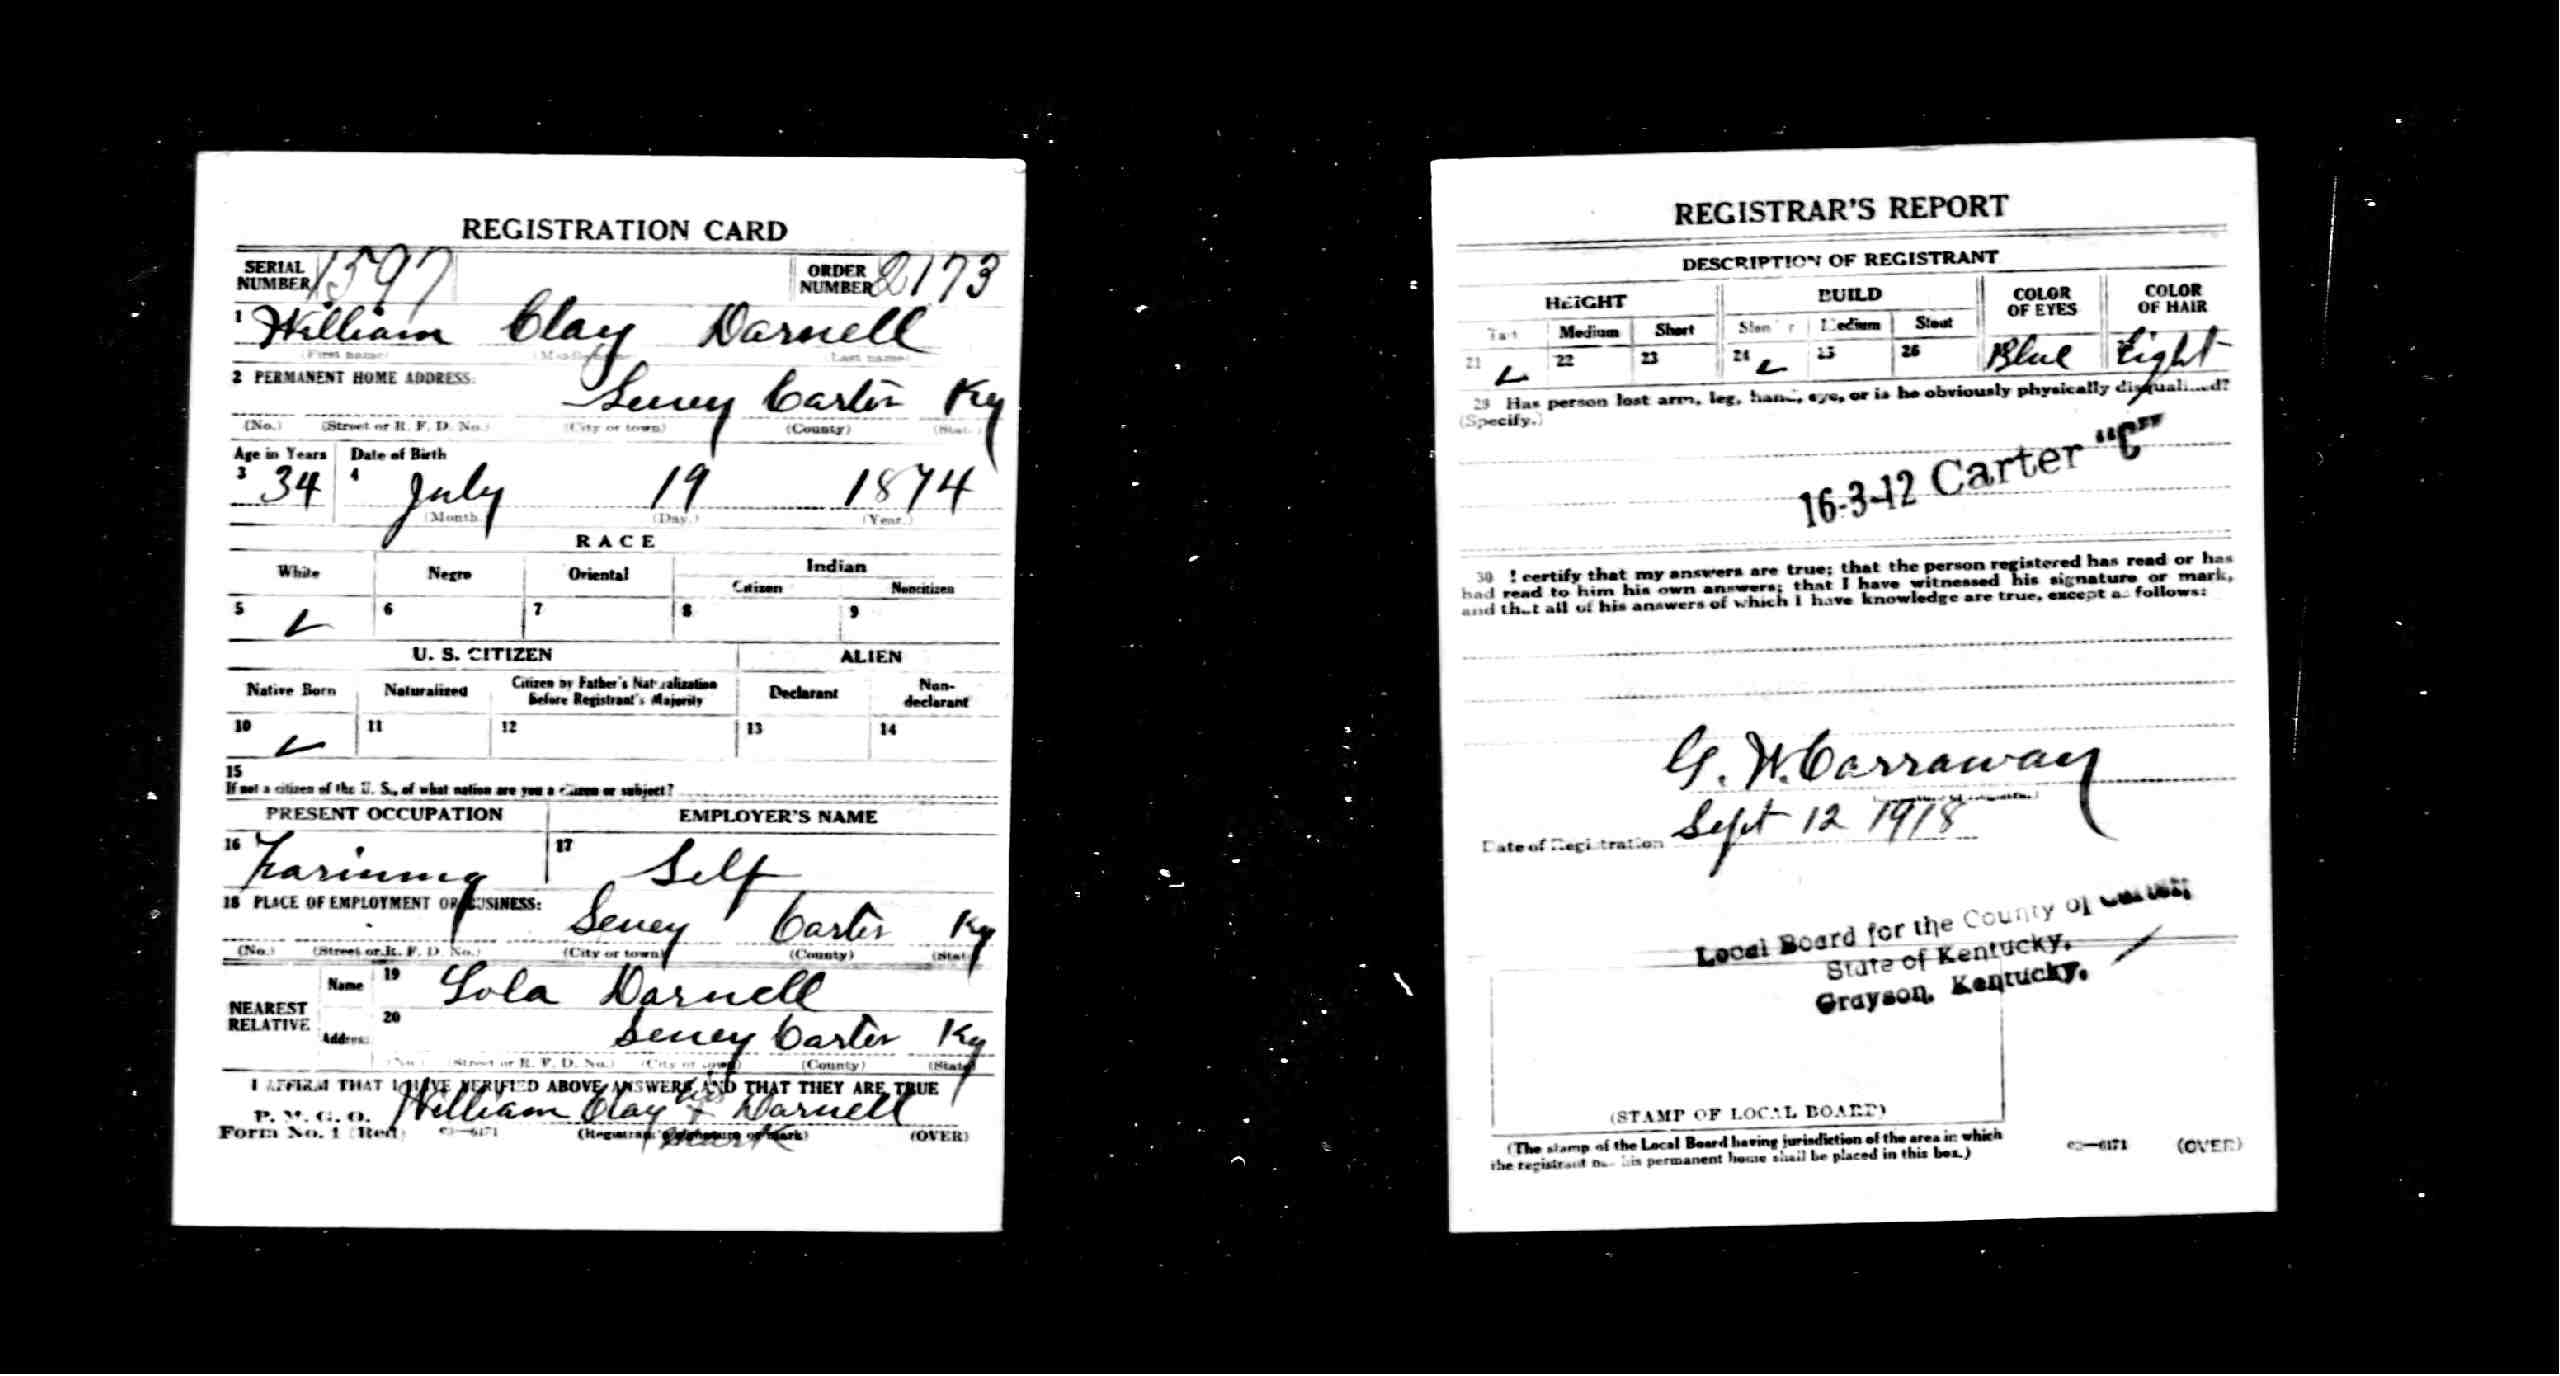 REGISTRATION CARD
SERIAL NUMBER 1597 ORDER NUMBER 2173
1 William Clay Darnell
(First name) (Middle name) (Last name)
2 PERMANENT HOME ADDRESS:
Seney Carter Ky
(No.) (Street or R. F. D. No.) (City or town) (County) (State)
Age in Years Date of Birth
3 34 4 July 19 1874
(Month.) (Day.) (Year.)
RACE
White Negro Oriental Indian
Citizen Noncitizen
5 ✓ 6 7 8 9
U. S. CITIZEN ALIEN
Native Born Naturalized Citizen by Father's Naturalization Before Registrant's Majority Declarant Non-declarant
10 ✓ 11 12 13 14
15
If not a citizen of the U. S., of what nation are you a citizen or subject?
PRESENT OCCUPATION EMPLOYER'S NAME
16 Farming 17 Self
18 PLACE OF EMPLOYMENT OR BUSINESS:
Seney Carter Ky
(No.) (Street or R. F. D. No.) (City or town) (County) (State)
NEAREST RELATIVE
Name 19 Lola Darnell
Address 20 Seney Carter Ky
(No.) (Street or R. F. D. No.) (City or town) (County) (State)
I AFFIRM THAT I HAVE VERIFIED ABOVE ANSWERS AND THAT THEY ARE TRUE
P. M. G. O.
Form No. 1 (Red) 03—6171
William Clay his x mark Darnell
(Registrant's signature or mark) (OVER)
REGISTRAR'S REPORT
DESCRIPTION OF REGISTRANT
HEIGHT BUILD COLOR OF EYES COLOR OF HAIR
Tall Medium Short Slender Medium Stout
21 ✓ 22 23 24 ✓ 25 26 Blue Light
29 Has person lost arm, leg, hand, eye, or is he obviously physically disqualified?
(Specify.)
16-3-12 Carter "C"
30 I certify that my answers are true; that the person registered has read or has
had read to him his own answers; that I have witnessed his signature or mark,
and that all of his answers of which I have knowledge are true, except as follows:
G. W. Carraway
Date of Registration Sept 12 1918
Local Board for the County of Carter,
State of Kentucky,
Grayson, Kentucky.
(STAMP OF LOCAL BOARD)
(The stamp of the Local Board having jurisdiction of the area in which
the registrant has his permanent home shall be placed in this box.)
03—6171 (OVER)